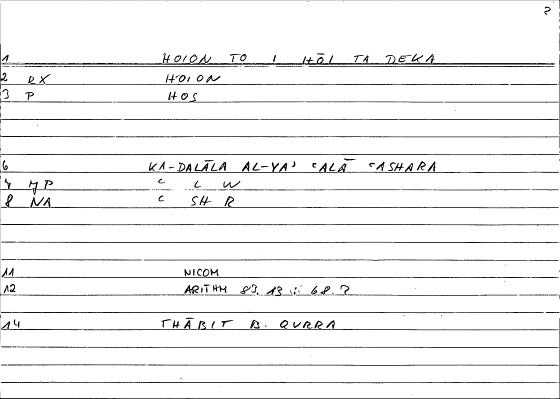 2
1 HOION TO I HŌI TA DEKA
2 RX HOION
3 P HOS
6 KA-DALĀLA AL-YAʾ ʿALĀ ʿASHARA
7 MP ʿ L W
8 NA ʿ SH R
11 NICOM
12 ARITHM 83, 13 :: 68.2
14 THĀBIT B. QURRA